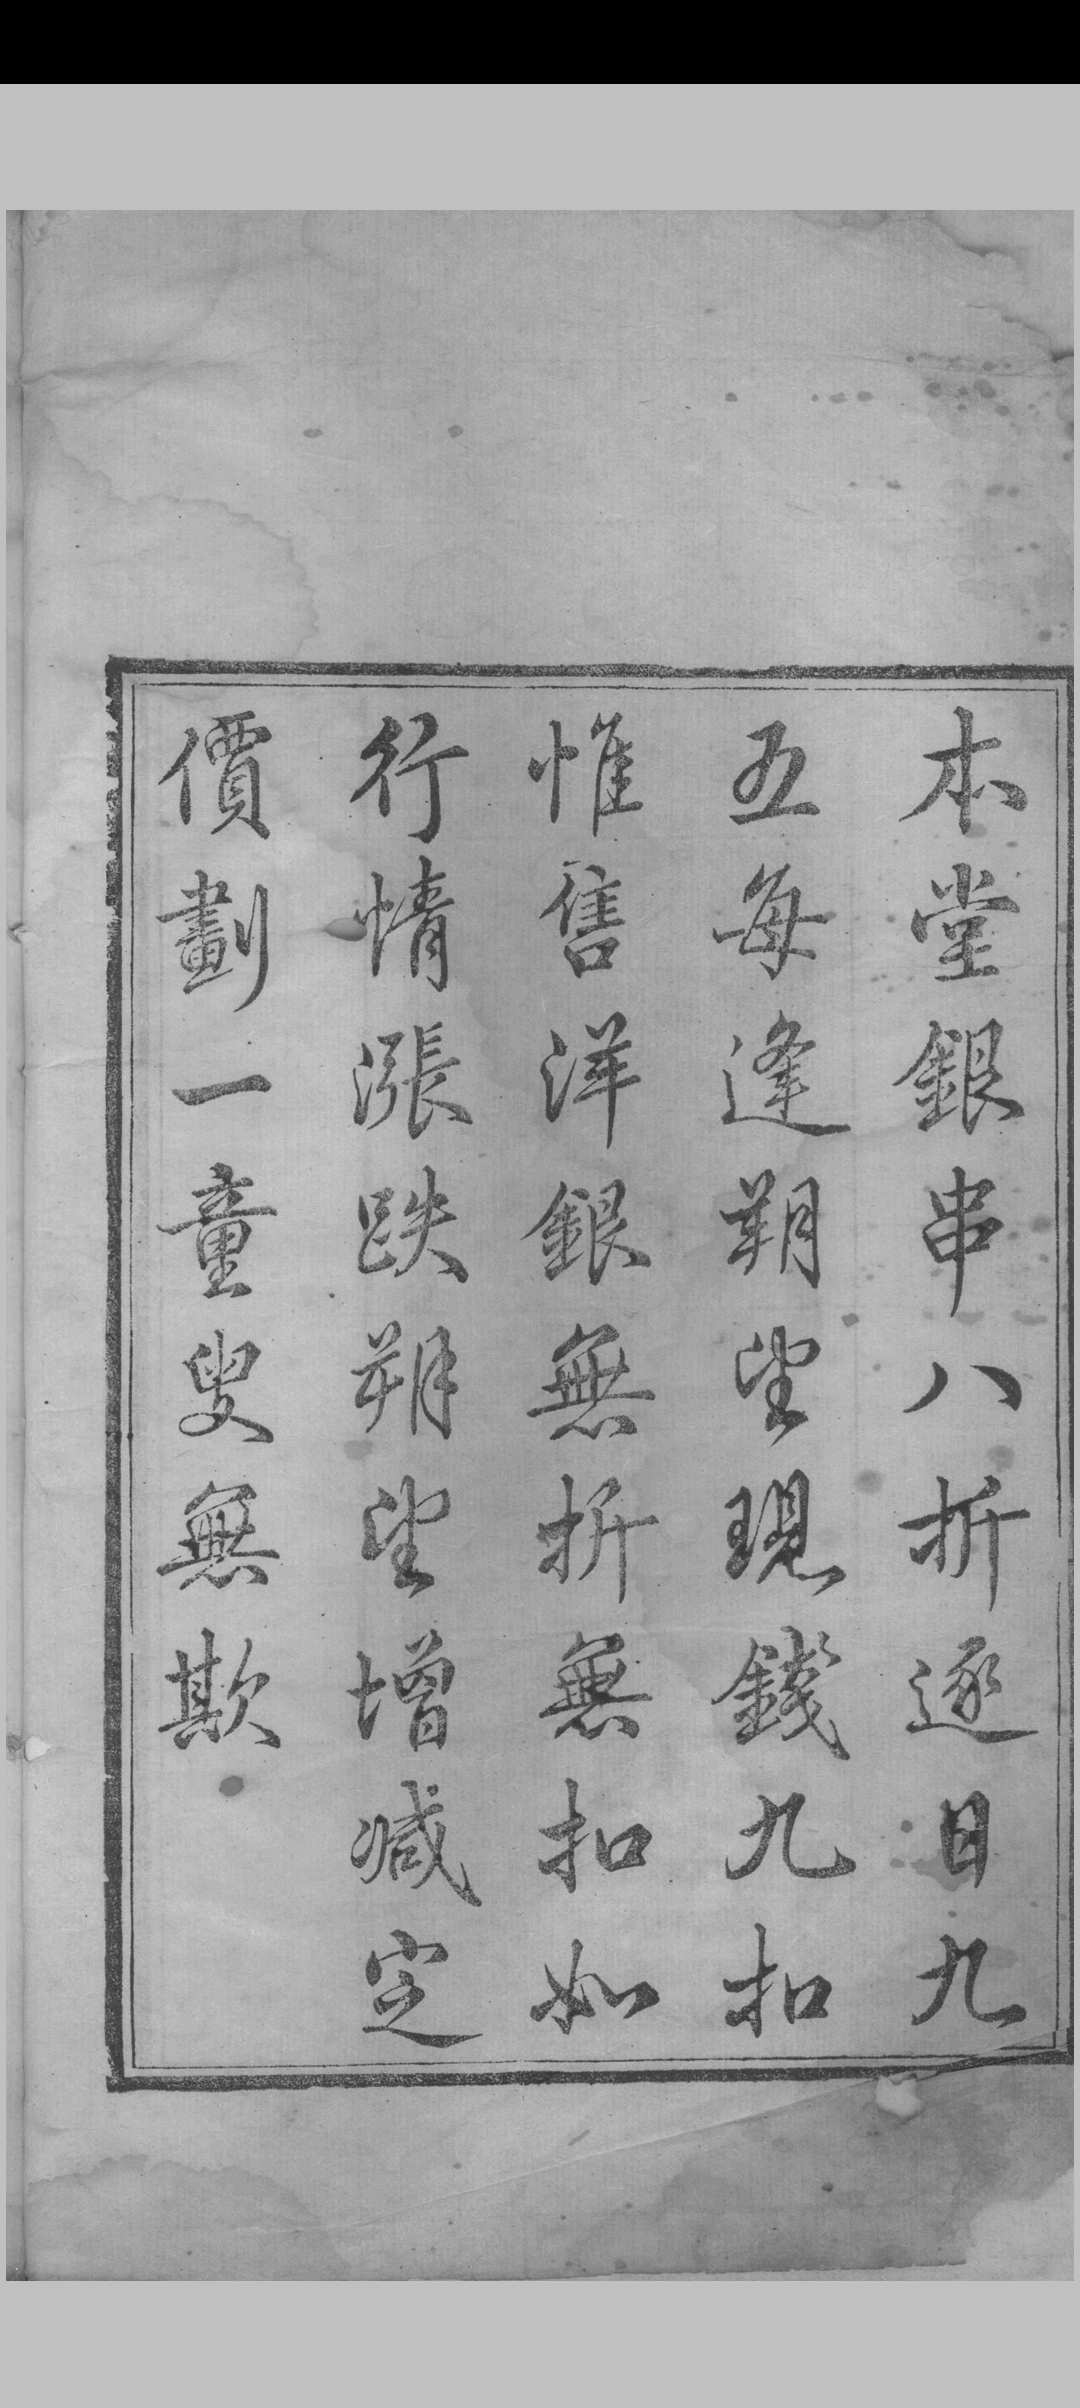 本堂銀串八折逐日九
五每逢朔望現錢九扣
惟售洋銀無折無扣如
行情漲跌朔望增減定
價劃一童叟無欺